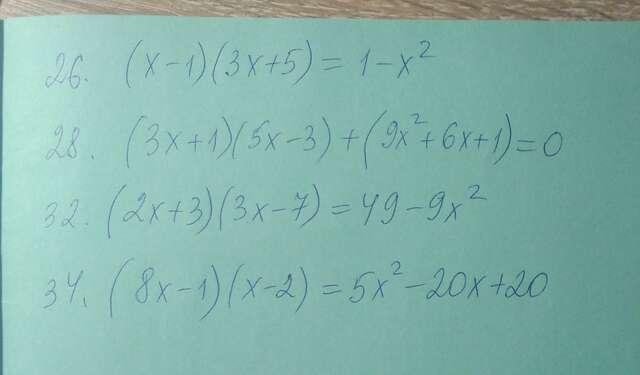 26. (x-1)(3x+5) = 1-x²
28. (3x+1)(5x-3)+(9x²+6x+1)=0
32. (2x+3)(3x-7)=49-9x²
34. (8x-1)(x-2)=5x²-20x+20